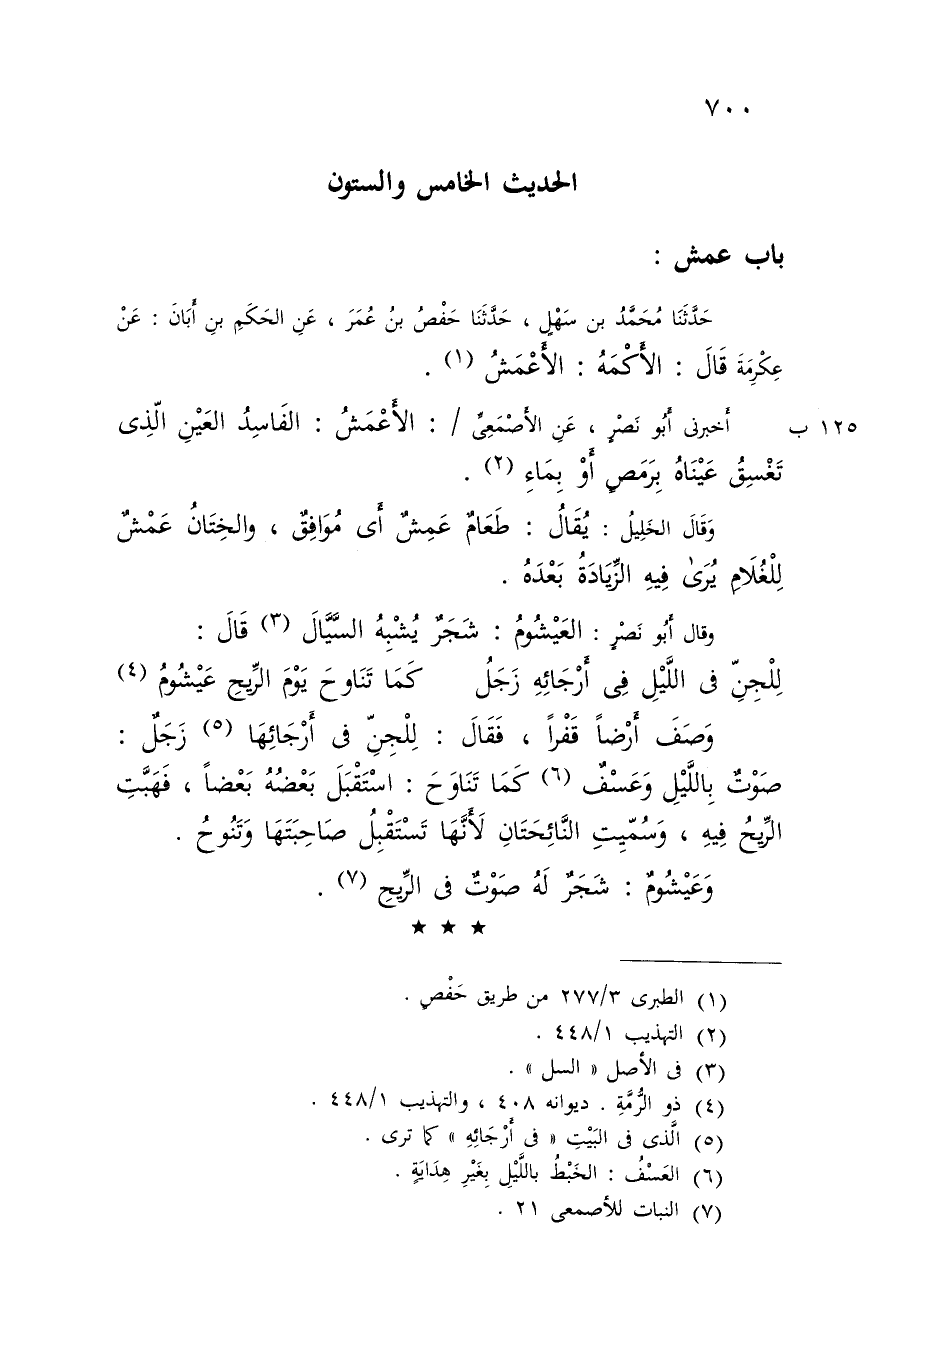 ٧٠٠
الحديث الخامس والستون
باب عمش :
حَدَّثَنَا مُحَمَّدُ بن سَهْلٍ ، حَدَّثَنَا حَفْصُ بنُ عُمَرَ ، عَنِ الحَكَمِ بنِ أَبَانَ : عَنْ
عِكْرِمَةَ قَالَ : الأَكْمَهُ : الأَعْمَشُ (١) .
١٢٥ ب أخبرنى أَبُو نَصْرٍ ، عَنِ الأَصْمَعِىِّ / : الأَعْمَشُ : الفَاسِدُ العَيْنِ الّذِى
تَغْسِقُ عَيْنَاهُ بِرَمَصٍ أَوْ بِمَاءِ (٢) .
وَقَالَ الخَلِيلُ : يُقَالُ : طَعَامٌ عَمِشٌ أَى مُوَافِقٌ ، والخِتَانُ عَمْشٌ
لِلْغُلَامِ يُرَىٰ فِيهِ الزِّيَادَةُ بَعْدَهُ .
وقال أَبُو نَصْرٍ : العَيْشُومُ : شَجَرٌ يُشْبِهُ السَّيَّالَ (٣) قَالَ :
لِلْجِنِّ فى اللَّيْلِ فِى أَرْجَائِهِ زَجَلُ كَمَا تَنَاوحَ يَوْمَ الرِّيحِ عَيْشُومُ (٤)
وَصَفَ أَرْضاً قَفْراً ، فَقَالَ : لِلْجِنّ فى أَرْجَائِهَا (٥) زَجَلٌ :
صَوْتٌ بِاللَّيْلِ وَعَسْفٌ (٦) كَمَا تَنَاوَحَ : اسْتَقْبَلَ بَعْضُهُ بَعْضاً ، فَهَبَّتِ
الرِّيحُ فِيهِ ، وَسُمّيتِ النَّائِحَتَانِ لَأَنَّهَا تَسْتَقْبِلُ صَاحِبَتَهَا وَتَنُوحُ .
وَعَيْشُومٌ : شَجَرٌ لَهُ صَوْتٌ فى الرِّيحِ (٧) .
★ ★ ★
(١) الطبرى ٢٧٧/٣ من طريق حَفْصٍ .
(٢) التهذيب ٤٤٨/١ .
(٣) فى الأصل « السل » .
(٤) ذو الرُّمَّةِ . ديوانه ٤٠٨ ، والتهذيب ٤٤٨/١ .
(٥) الَّذى فى البَيْتِ « فى أَرْجَائِهِ » كما ترى .
(٦) العَسْفُ : الخَبْطُ باللَّيْلِ بِغَيْرِ هِدَايَةٍ .
(٧) النبات للأصمعى ٢١ .